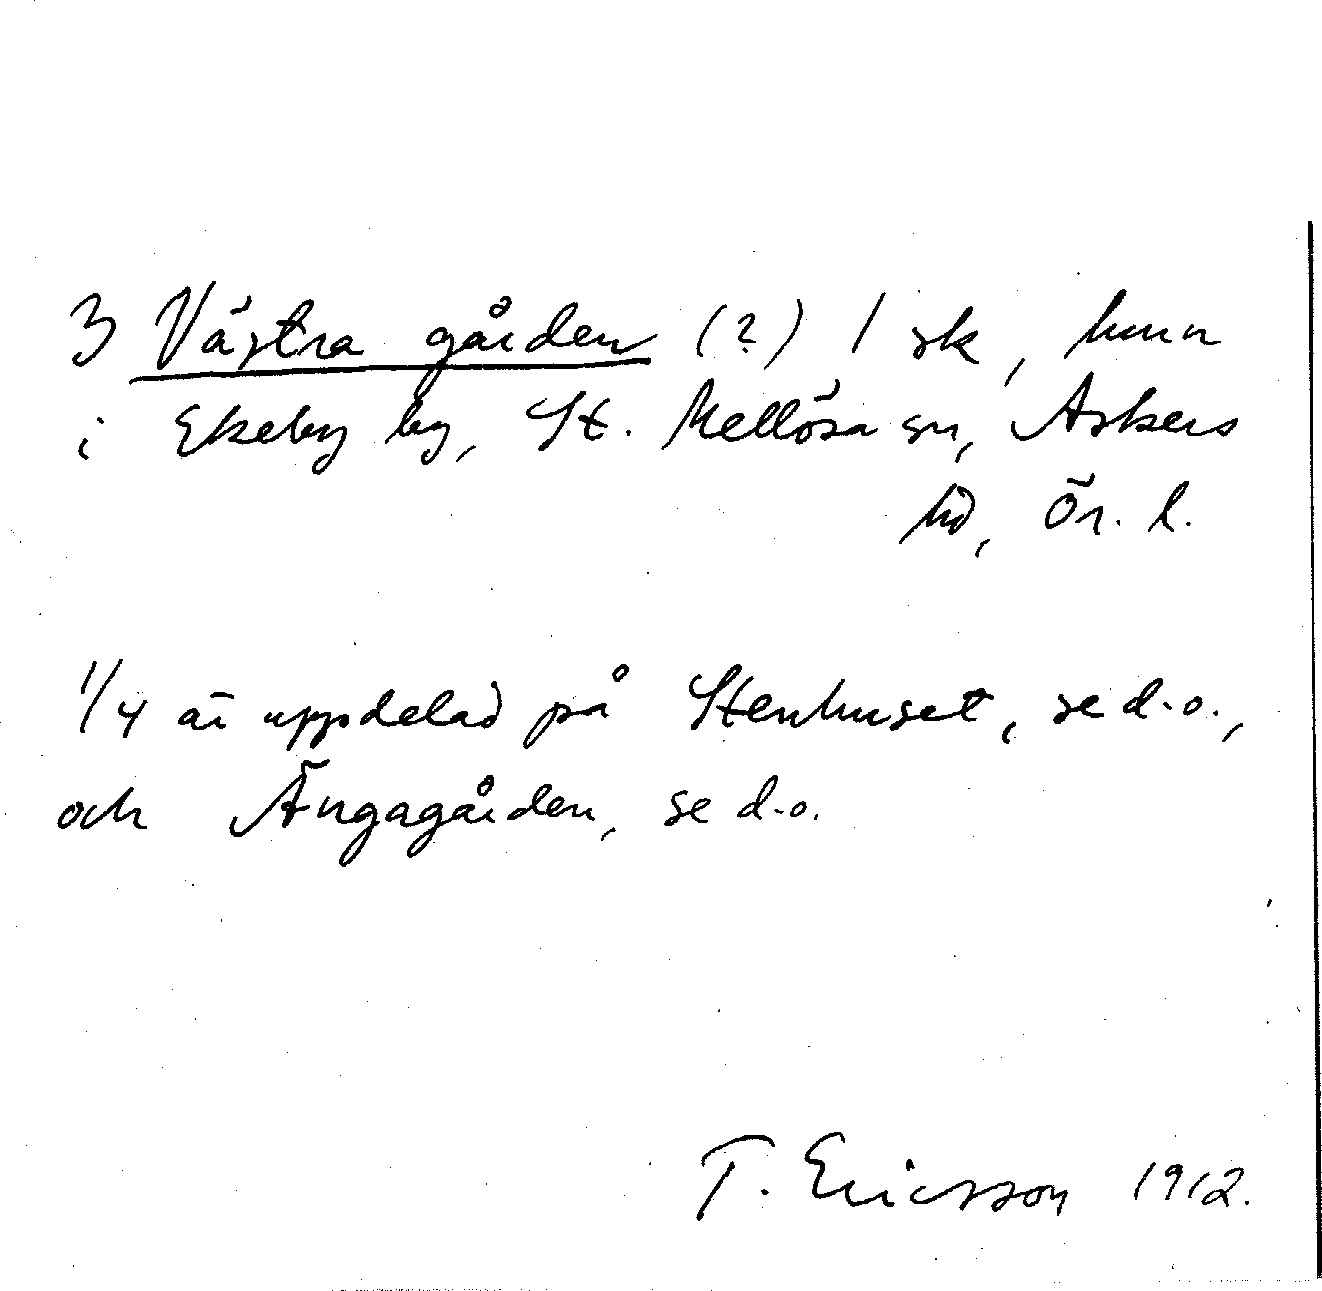 3 Västra gården (?) 1 sk, hmn
i Ekeby by, St. Mellösa sn, Askers
hd, Ör. l.
1/4 är uppdelad på Stenhuset, se d.o.,
och Ängagården, se d.o.
T. Ericsson 1912.